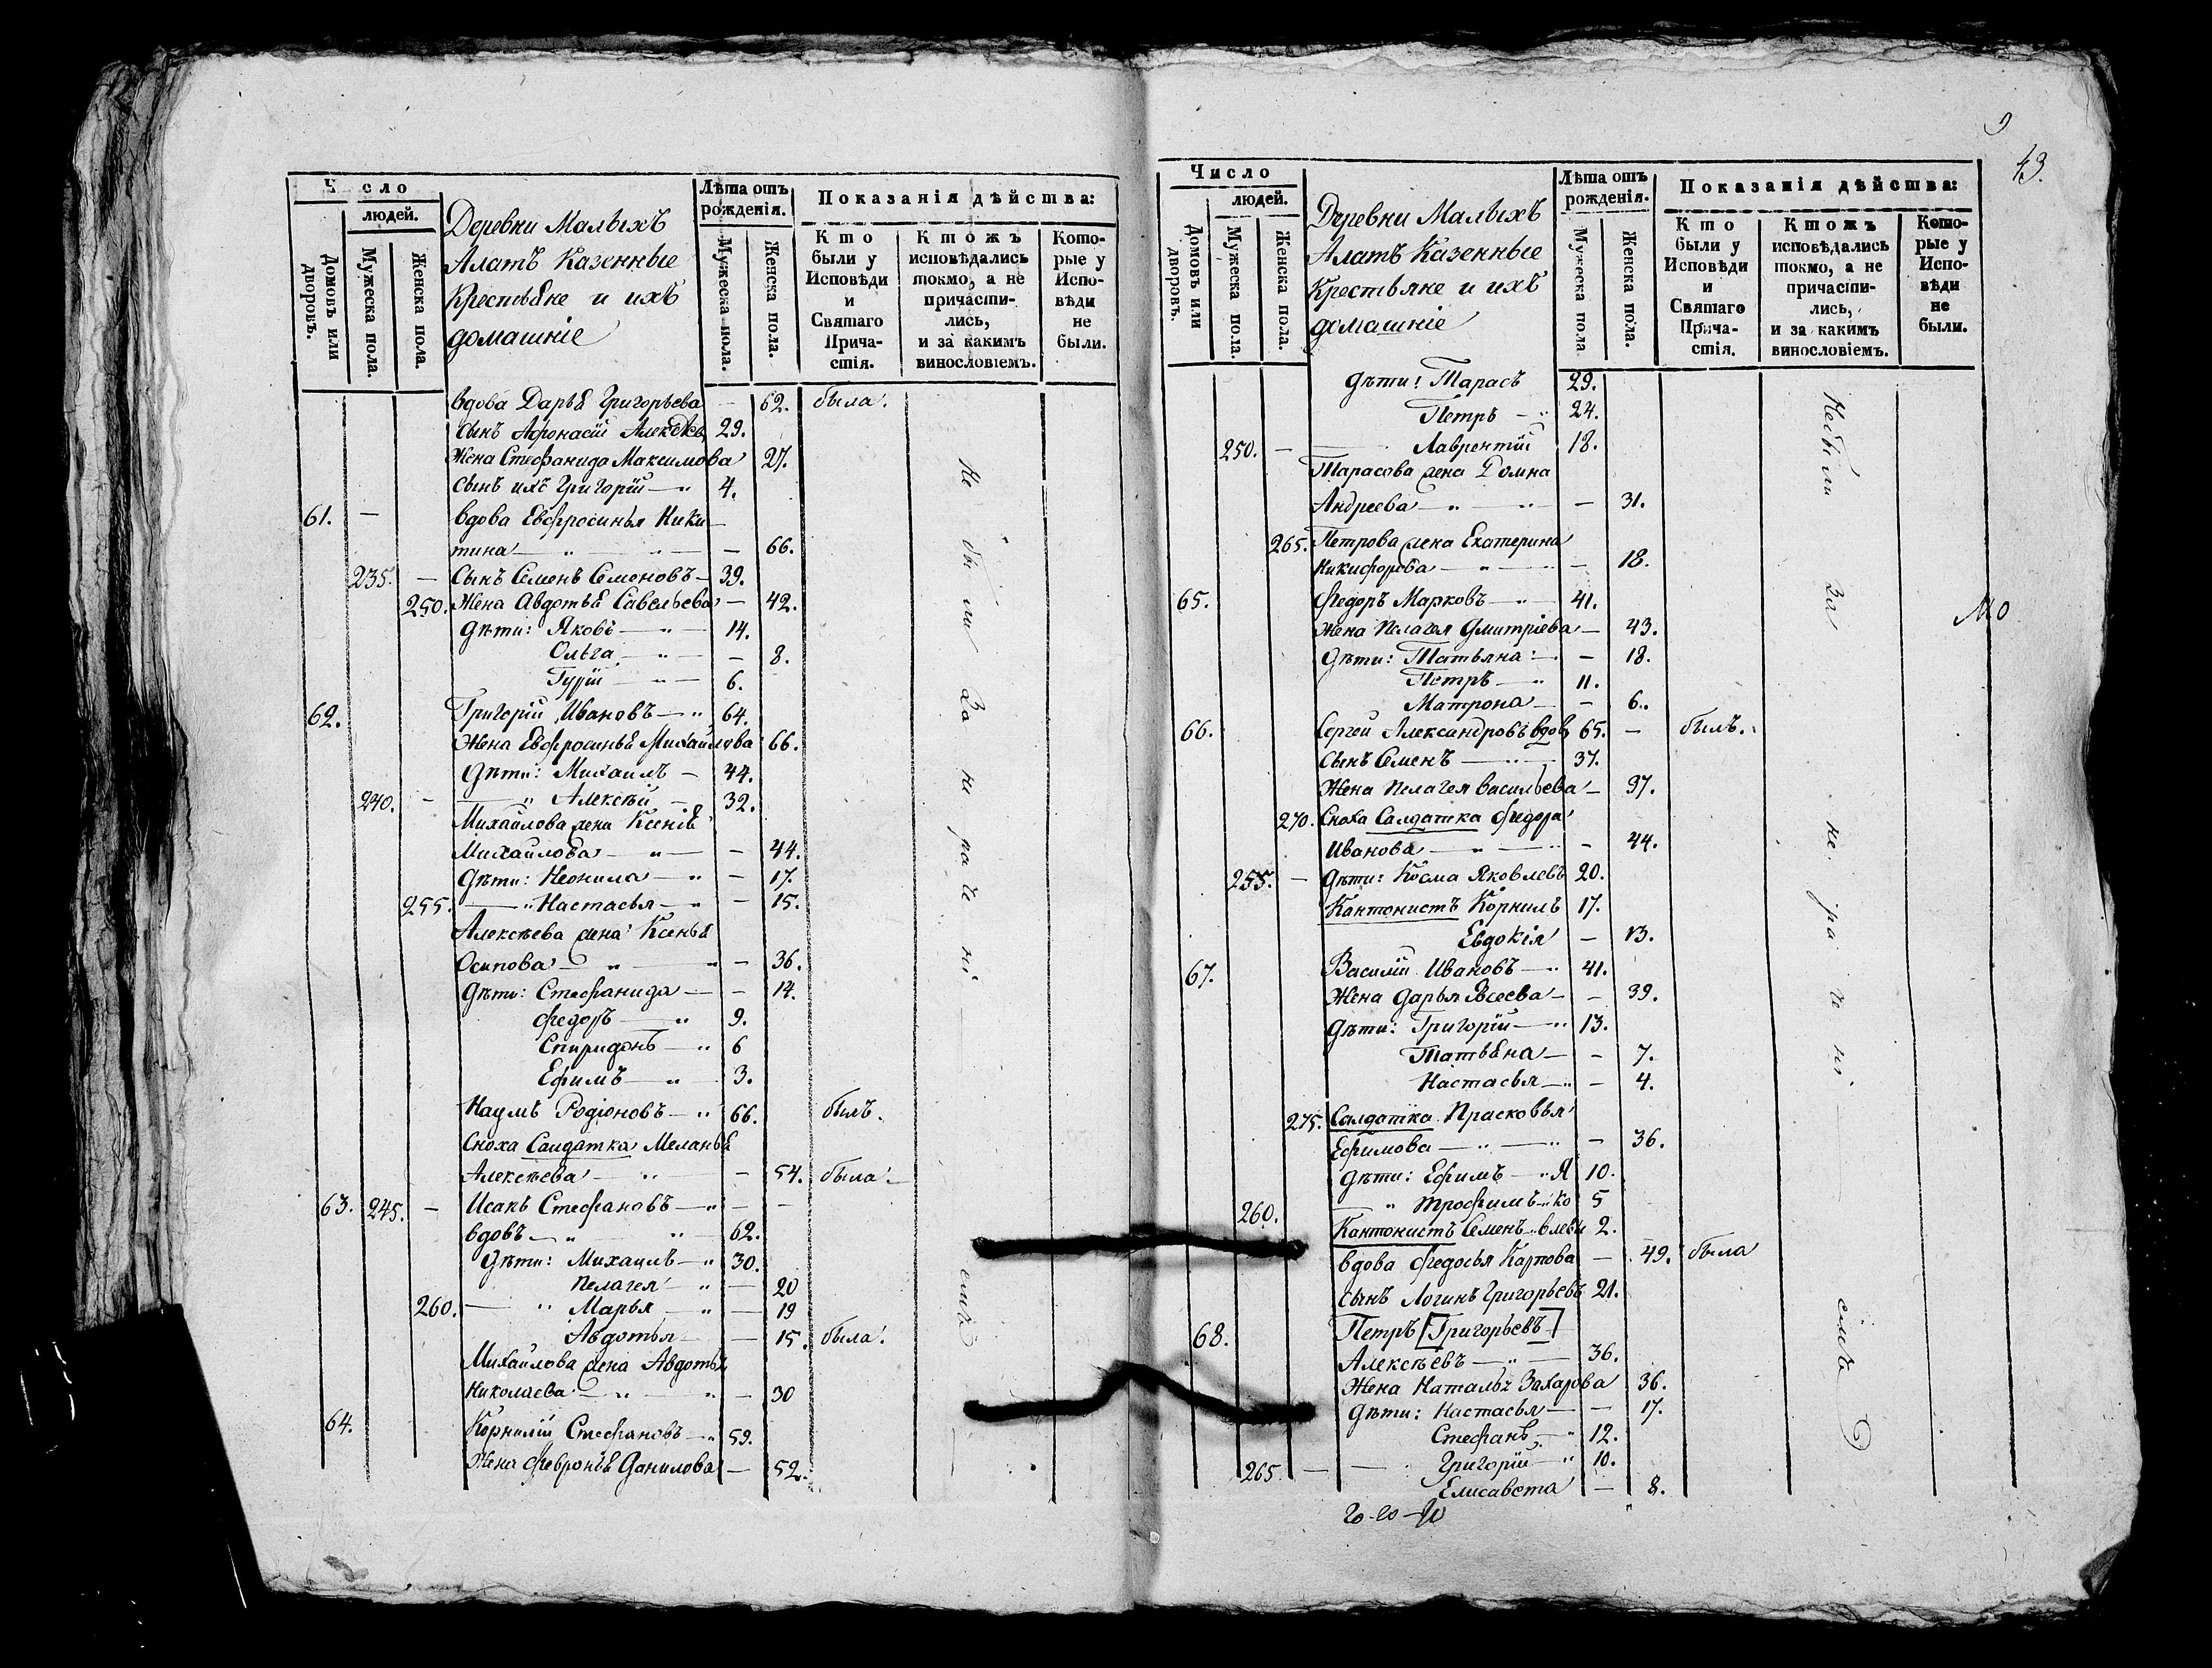 Число
людей.
Домовъ или дворовъ.
Мужеска пола.
Женска пола.
Деревни Малыхъ
Алатъ Казенные
Крестьяне и ихъ
домашніе
Лѣта отъ рожденія.
Мужеска пола.
Женска пола.
Показанія дѣйства:
Кто были у Исповѣди и Святаго Причастія.
Ктожъ исповѣдались токмо, а не причастились, и за какимъ винословіемъ.
Которые у Исповѣди не были.
вдова Дарья Григорьева — 62. была.
сынъ Афонасій Алексѣевъ 29.
Жена Стефанида Максимова 27.
сынъ ихъ Григорій — 4.
61. — вдова Евфросинья Ники-
тина — — 66.
235. — Сынъ Семенъ Семеновъ — 39.
250. Жена Авдотья Савельева — 42.
Дѣти: Яковъ — 14.
Ольга — — 8.
Гурій — 6.
62. Григорій Ивановъ — 64.
Жена Евфросинья Михайлова 66.
Дѣти: Михаилъ — 44.
240. — — Алексѣй — 32.
Михайлова жена Ксенія
Михайлова — — 44.
Дѣти: Неонила — — 17.
255. — Настасья — — 15.
Алексѣева жена Ксенья
Осипова — — 36.
Дѣти: Стефанида — — 14.
Федоръ — 9.
Спиридонъ — 6
Ефимъ — 3.
Наумъ Родіоновъ — 66. былъ.
Сноха Салдатка Меланья
Алексѣева — — 54. была.
63. 245. — Исакъ Стефановъ — — —
вдовъ — 62.
Дѣти: Михаилъ — 30.
Пелагея — — 20
260. — Марья — — 19
Авдотья — 15. была.
Михайлова жена Авдотья
Николаева — — 30
64. Корнилій Стефановъ — 59.
Жена Февронья Данилова — 52.
Не были За нерачені емъ
43.
Число
людей.
Домовъ или дворовъ.
Мужеска пола.
Женска пола.
Деревни Малыхъ
Алатъ Казенные
Крестьяне и ихъ
домашніе
Лѣта отъ рожденія.
Мужеска пола
Женска пола.
Показанія дѣйства:
Кто были у Исповѣди и Святаго Причастія.
Ктожъ исповѣдались токмо, а не причастились, и за какимъ винословіемъ.
Которые у Исповѣди не были.
Дѣти: Тарасъ 29.
Петръ — 24.
250. — — Лаврентій 18.
Тарасова жена Домна
Андреева — — 31.
265. Петрова жена Екатерина
Никифорова — — 18.
65. Федоръ Марковъ — 41.
Жена Пелагея Дмитріева — 43.
Дѣти: Татьяна — — 18.
Петръ — 11.
Матрона — — 6.
66. Сергей Александровъ вдов 65. — былъ.
сынъ Семенъ — 37.
Жена Пелагея Васильева — 37.
270. Сноха Салдатка Федора
Иванова — — 44.
255. — Дѣти: Косма Яковлевъ 20.
Кантонистъ Корнилъ 17.
Евдокія — 13.
67. Василій Ивановъ — 41.
Жена Дарья Евсеева — — 39.
Дѣти: Григорій — 13.
Татьяна — — 7.
Настасья — — 4.
275. Салдатка Прасковья
Ефимова — — 36.
Дѣти: Ефимъ — Я 10.
260. — Трофимъ — ко 5
Кантонистъ Семенъ влевы 2.
вдова Федосья Карпова — 49. была
сынъ Логинъ Григорьевъ 21.
68. Петръ [Григорьевъ]
Алексѣевъ — 36.
Жена Наталья Захарова 36.
Дѣти: Настасья — — 17.
Стефанъ — 12.
265. — — Григорій — 10.
Елисавета — 8.
Не были За нерачені емъ